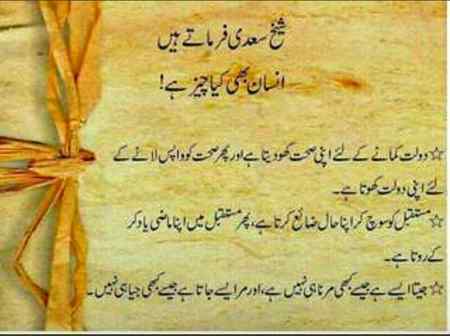 شیخ سعدی فرماتے ہیں
انسان بھی کیا چیز ہے!
☆دولت کمانے کے لئے اپنی صحت کھو دیتا ہے اور پھر صحت کو واپس لانے کے
لئے اپنی دولت کھوتا ہے۔
☆مستقبل کو سوچ کر اپنا حال ضائع کرتا ہے، پھر مستقبل میں اپنا ماضی یاد کر
کے روتا ہے۔
☆جیتا ایسے ہے جیسے کبھی مرنا ہی نہیں ہے، اور مر ایسے جاتا ہے جیسے کبھی جیا ہی نہیں۔